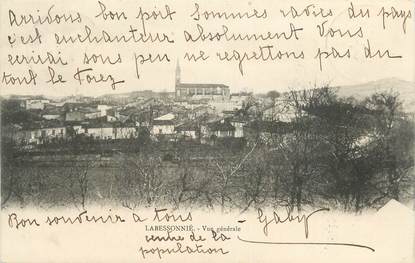 Arridons bon poit Sommes ravies du pays
c'est enchanteur absolument Vous
ecrirai sous peu ne regrettons pas du
tout le Forez
LABESSONNIÉ. - Vue générale
Bon souvenir a tous - Gaby -
venue de la
population